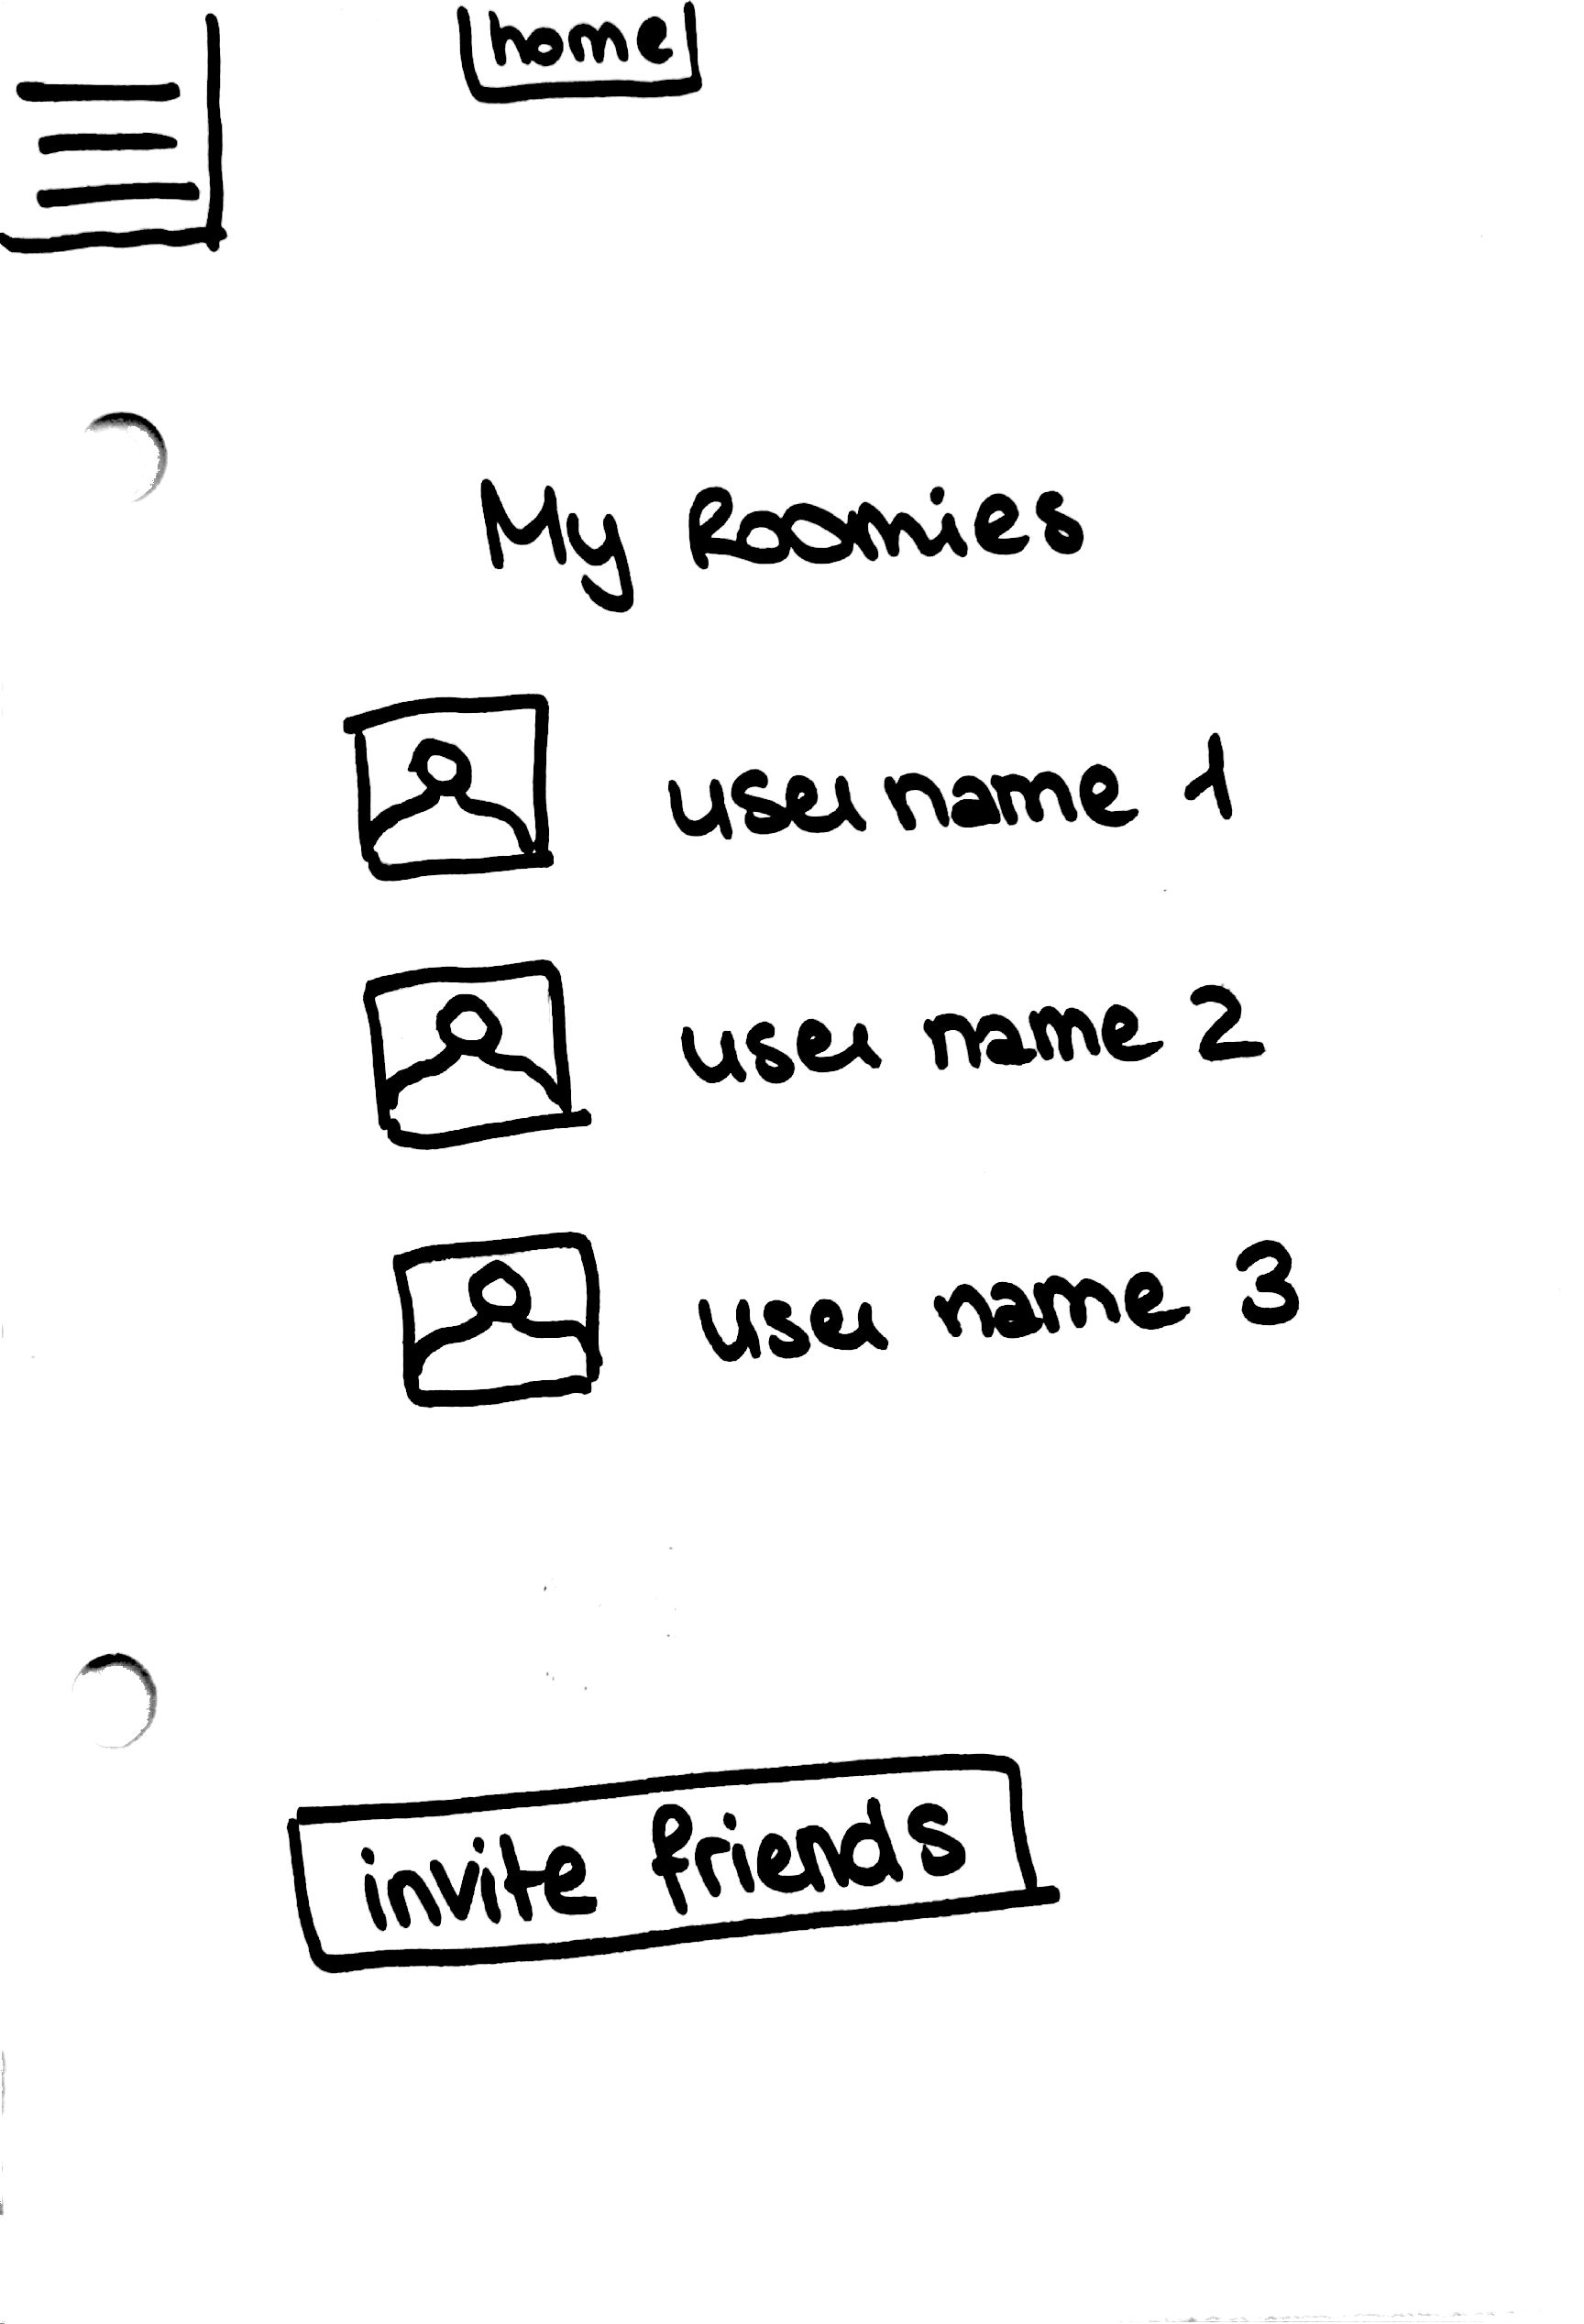 home
My Roomies
user name 1
user name 2
user name 3
invite friends